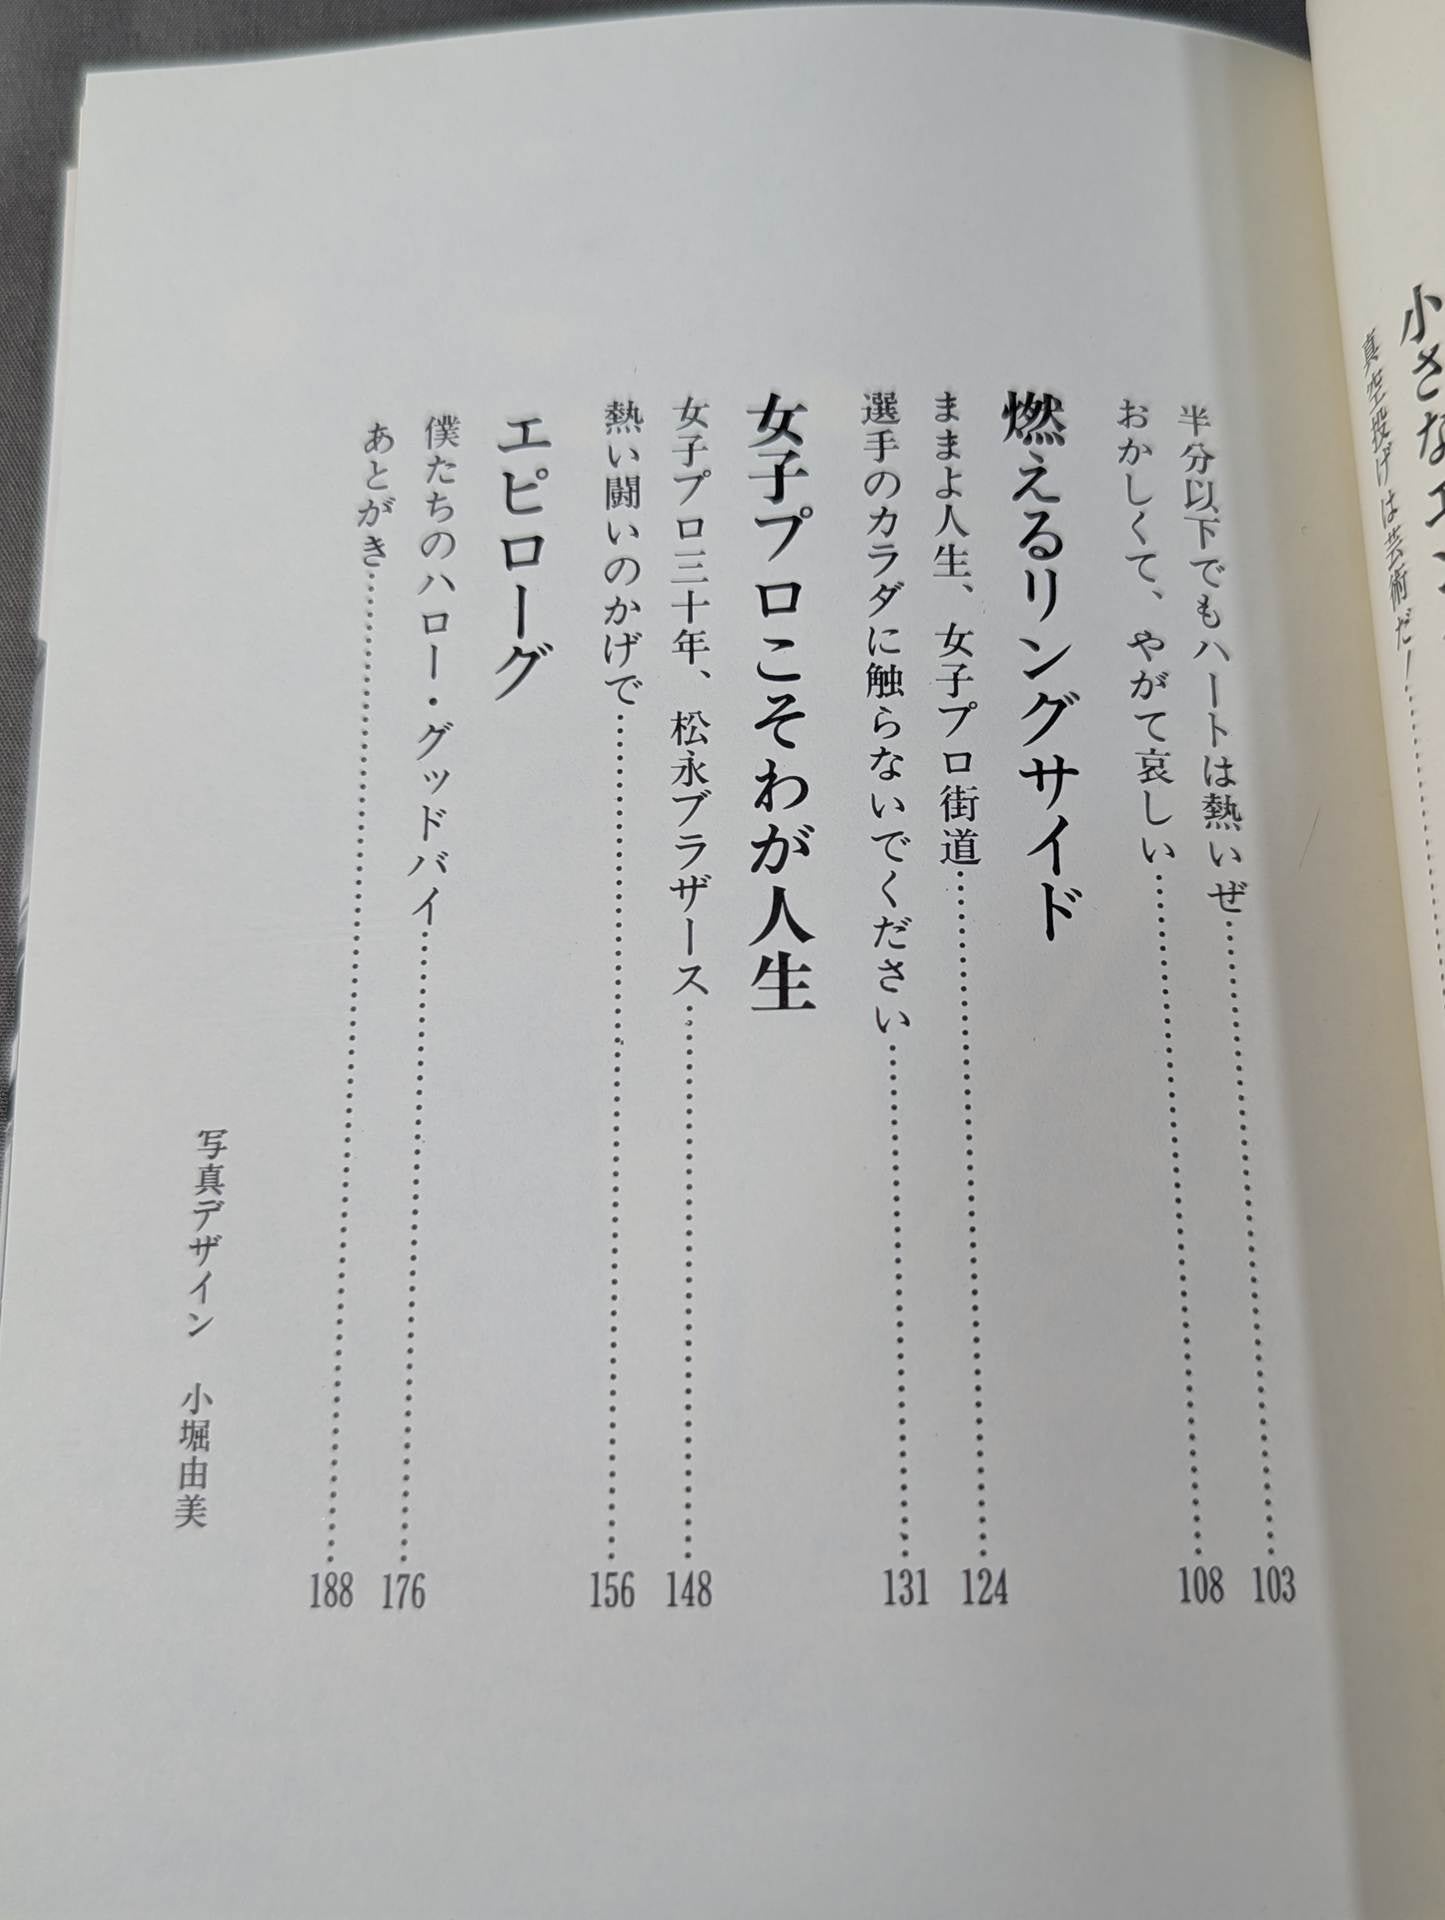 小さな
真空投げは芸術だ！
半分以下でもハートは熱いぜ……103
おかしくて、やがて哀しい……108
燃えるリングサイド
ままよ人生、女子プロ街道……124
選手のカラダに触らないでください……131
女子プロこそわが人生
女子プロ三十年、松永ブラザース……148
熱い闘いのかげで……156
エピローグ
僕たちのハロー・グッドバイ……176
あとがき……188
写真デザイン　小堀由美